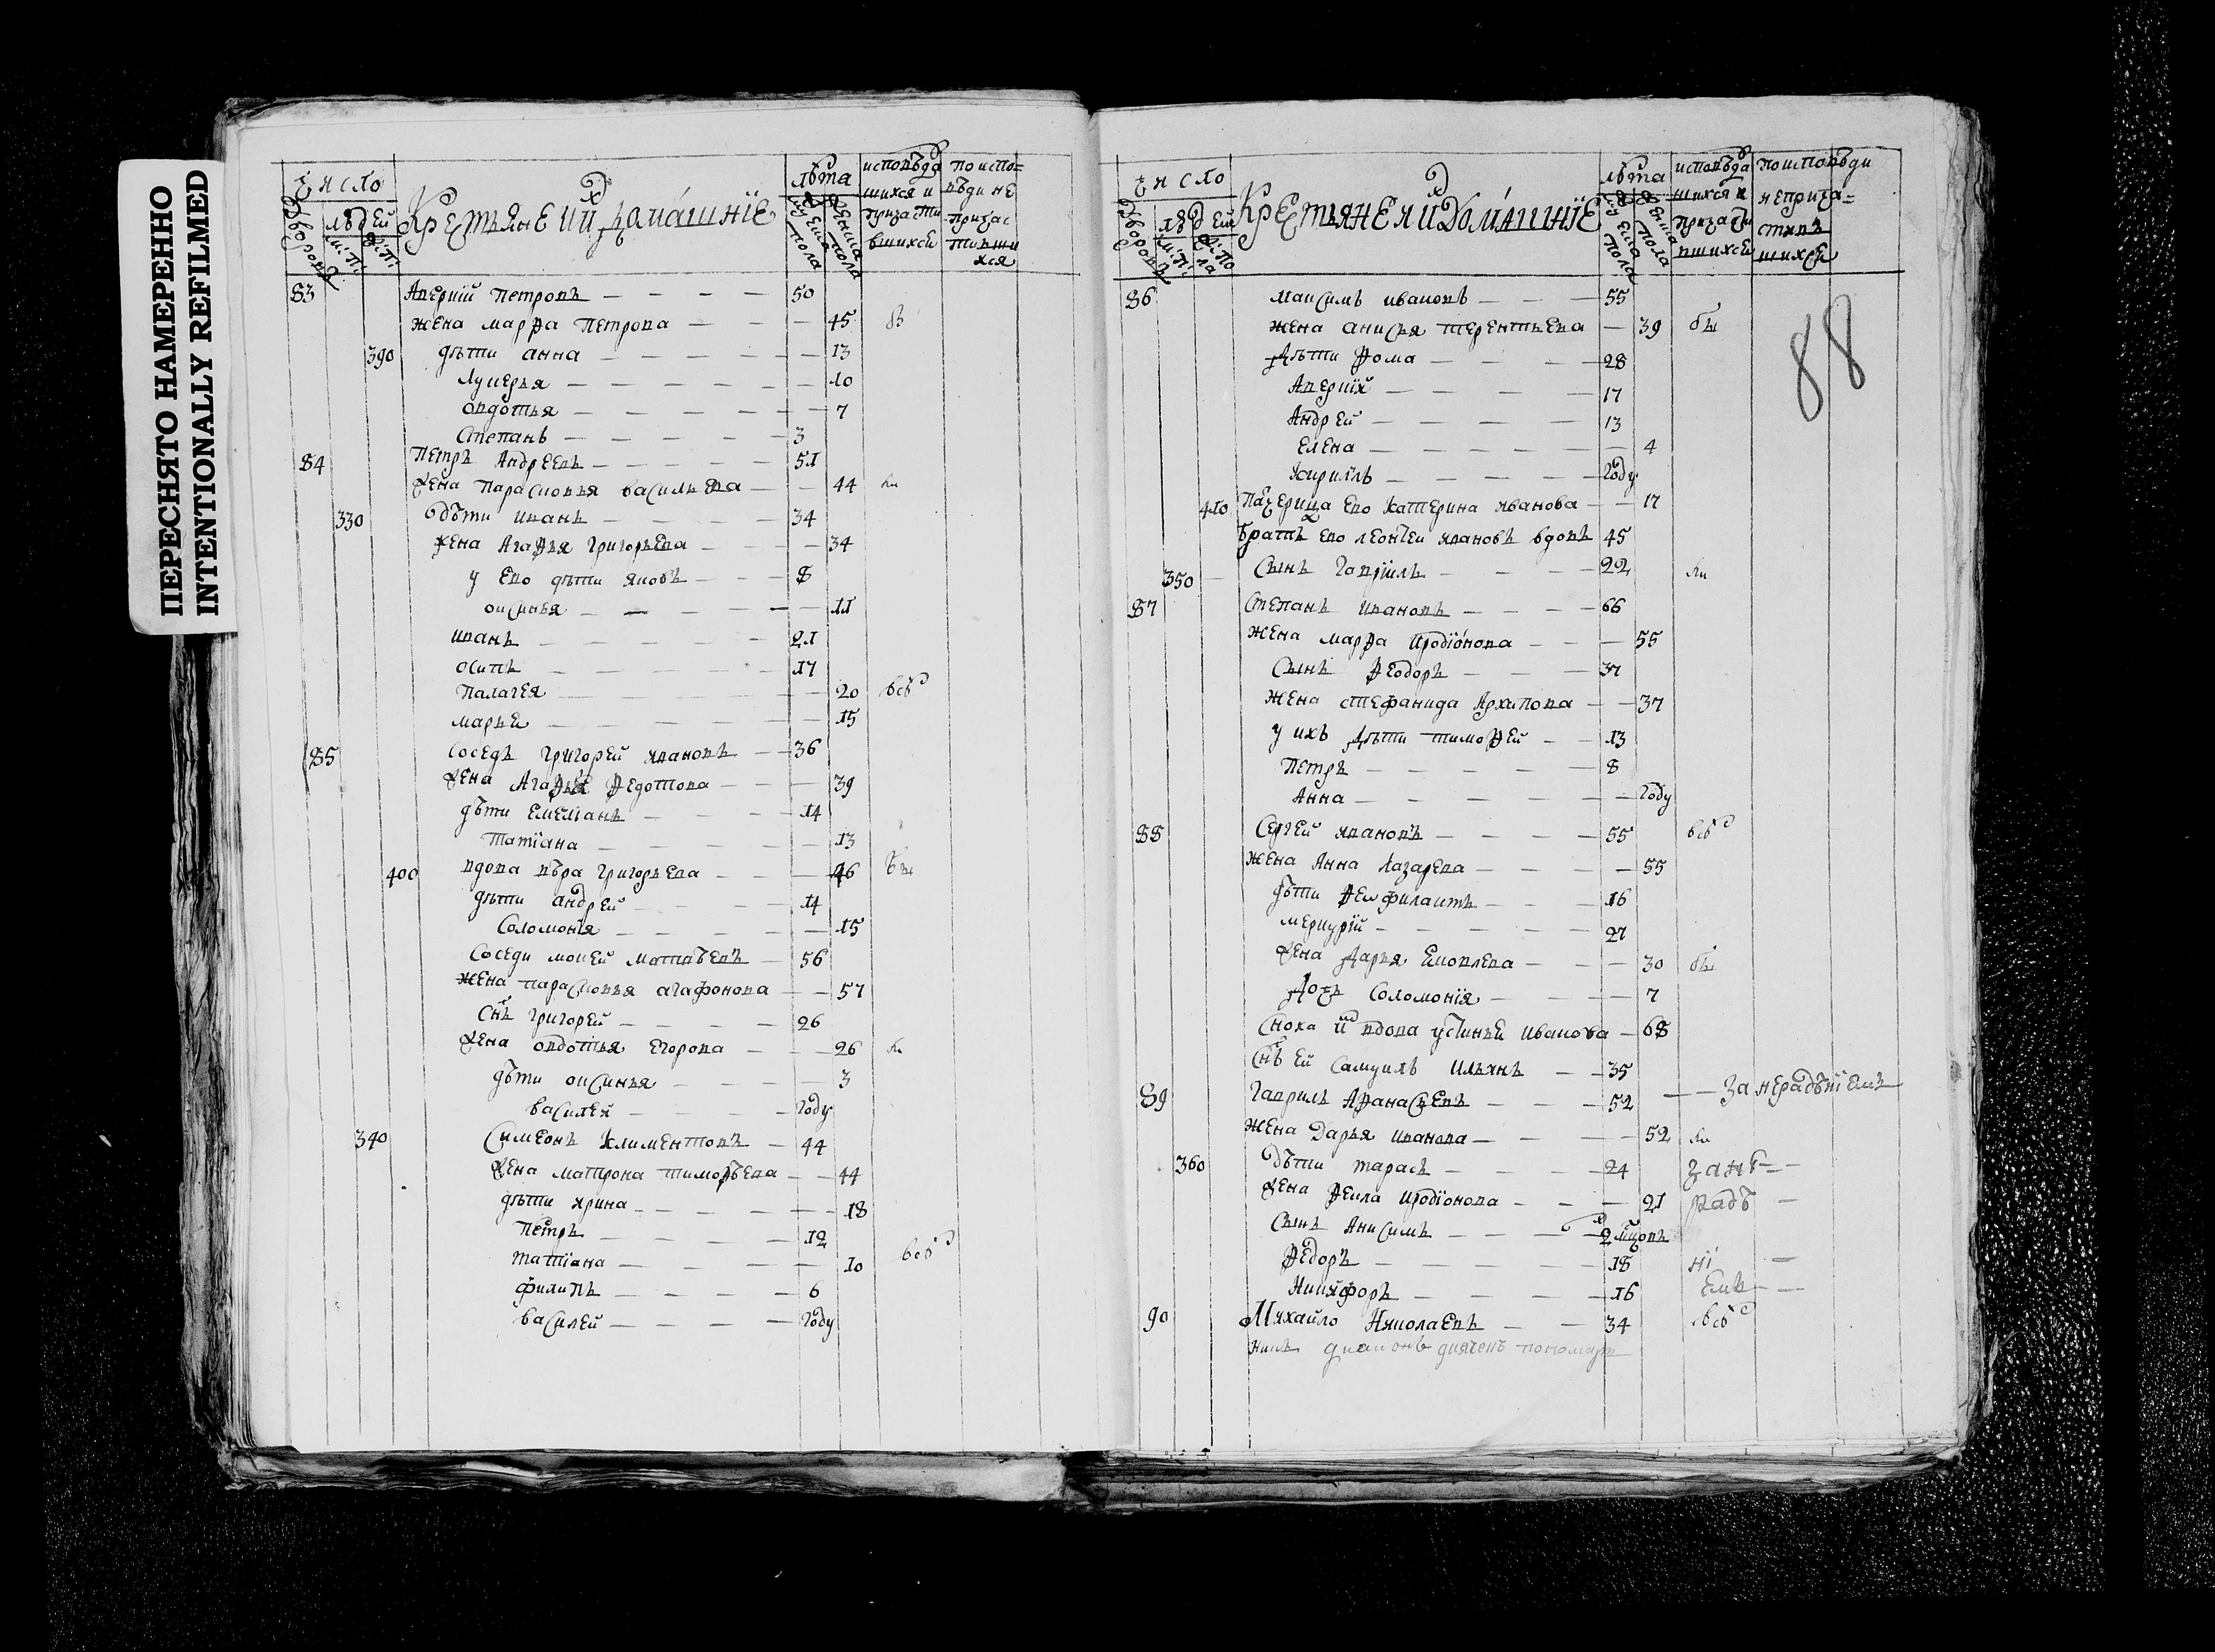 ПЕРЕСНЯТО НАМЕРЕННО
INTENTIONALLY REFILMED
Число
дворовъ
людей
м: п:
ж: п:
Крестьяне и ихъ домашнїе
лѣта
мужеска пола
женска пола
исповѣдавшихся и причастившихся
по исповѣди не причастившихся
83 Аверкїй Петровъ — — — — 50
жена марѳа Петрова — — — 45
390 дѣти анна — — — — — 13
Лукерья — — — — — — 10
овдотья — — — — — — 7
Степанъ — — — — — 3
84 Петръ Андреевъ — — — — — 51
жена Парасковья васильева — — 44
330 дѣти иванъ — — — — 34
жена Агаѳья Григорьева — — — — 34
у ево дѣти яковъ — — — 8
оксинья — — — — — 11
иванъ — — — — — 21
осипъ — — — — — 17
Палагея — — — — — 20 всѣ
марья — — — — — — 15
85 Соседъ Григорей ивановъ — — 36
жена Агаѳья Ѳедотова — — — 39
дѣти Емельанъ — — — — 14
Татїана — — — — — 13
400 вдова вѣра Григорьева — — — 46
дѣти андрей — — — — 14
Соломонїя — — — — — 15
Соседи мокей матвѣевъ — 56
жена парасковья агафонова — — 57
Снъ Григорей — — — — 26
жена овдотья Егорова — — — 26
дѣти оксинья — — — — 3
василей — — — — Году
340 Симеонъ климентовъ — 44
жена матрона тимоѳѣева — — 44
дѣти ирина — — — — — — 18
Петръ — — — — — 12
татїана — — — — — 10 всѣ
филипъ — — — — — 6
василей — — — — Году
Число
дворовъ
людей
м: п:
ж: пола
Крестьяне и ихъ домашнїе
лѣта
мужеска пола
женска пола
исповѣдавшихся и причастившихся
по исповѣди не причастившихся
88
86 максимъ ивановъ — — — 55
жена анисья терентьева — 39
дѣти Ѳома — — — — 28
Аверкїй — — — — — 17
Андрей — — — — — 13
Елена — — — — — — 4
Кирилъ — — — — — Году
410 Падчерица ево Катерина иванова — — 17
братъ ево леонтеи ивановъ вдовъ 45
350 Сынъ Гаврїилъ — — — — 22
87 Степанъ ивановъ — — — — 66
жена марѳа Иродїонова — — — 55
Сынъ Ѳеодоръ — — — 37
жена стефанида Архипова — — 37
у ихъ дѣти тимоѳей — — 13
Петръ — — — — — 8
Анна — — — — — — Году
88 Сергей ивановъ — — — — 55 всѣ
жена Анна Лазарева — — — — — 55
дѣти Ѳеофилактъ — — — 16
меркурїй — — — — — 27
жена Дарья Яковлева — — — 30
дочь Соломонїя — — — — 7
Сноха вдова устинья иванова — 68
Снъ ей Самуилъ — — 35
89 Гаврилъ Аѳанасьевъ — — — 52 — — за нерадѣнїемъ
жена Дарья иванова — — — — 52
360 дѣти тарасъ — — — — 24 за не
жена Ѳекла Иродїонова — — — 21 радѣ
Сынъ Анисимъ — — — 2 мцовъ
Ѳедоръ — — — — — 18 нї
Никифоръ — — — — — 16 емъ
90 Михайло Николаевъ — — 34 всѣ